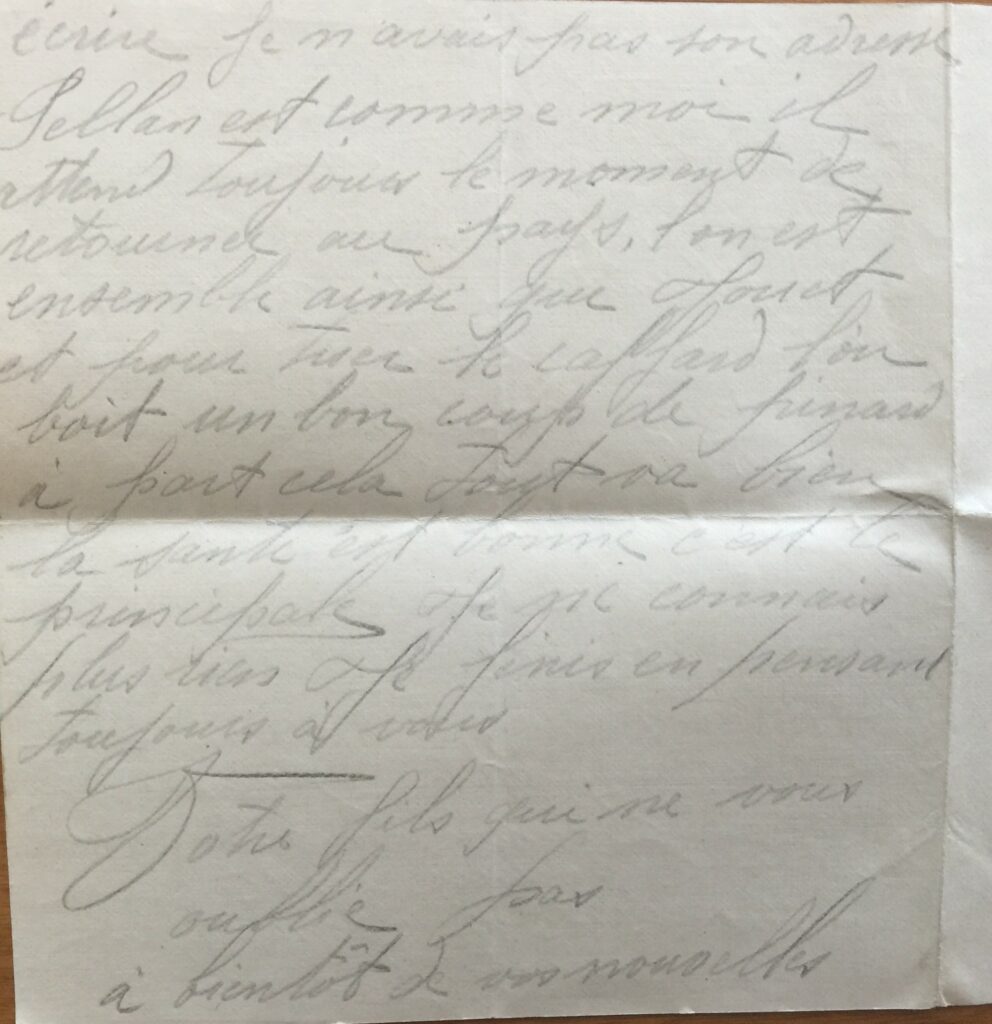 écrire Je n'avais pas son adresse
Sellan est comme moi il
attend toujours le moment de
retourner au pays, l'on est
ensemble ainsi que Jouet
et pour tuer le caffard l'on
boit un bon coup de pinard
à part cela tout va bien
la santé est bonne c'est le
principale Je ne connais
plus rien Je finis en pensant
toujours à vous
Votre fils qui ne vous
oublie pas
à bientôt de vos nouvelles